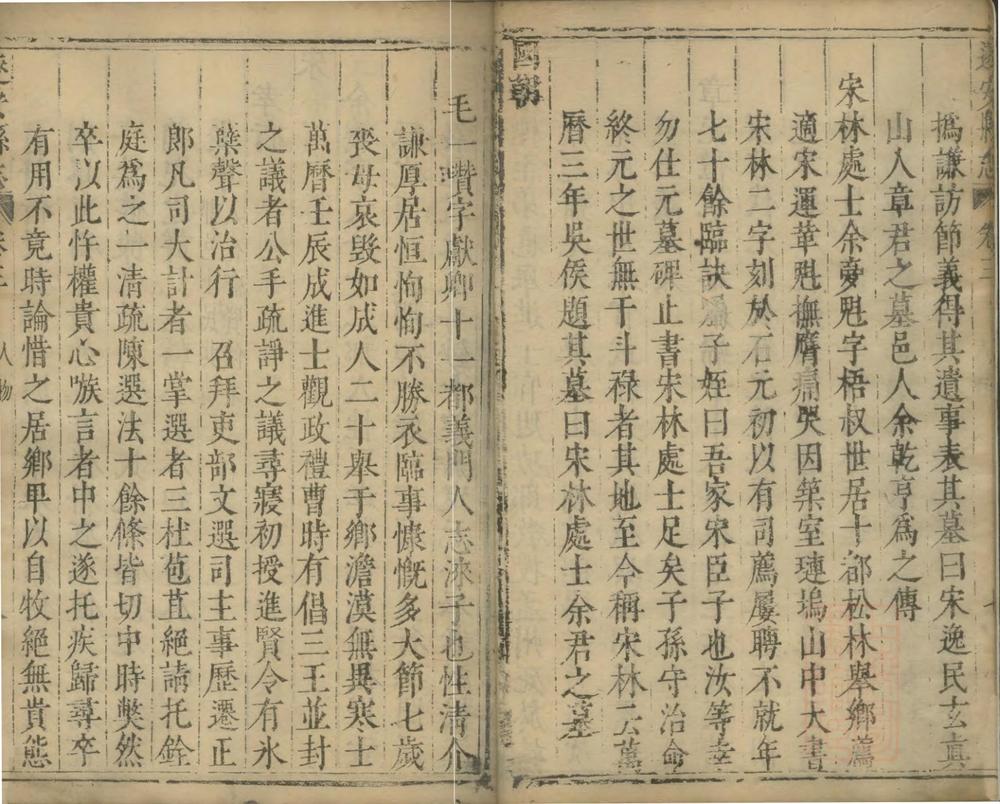 遂安縣志 卷三
撝謙訪節義得其遺事表其墓曰宋逸民玄真
山人章君之墓邑人余乾亨爲之傳
宋林處士余夢魁字梧叔世居十都松林舉鄉薦
適宋運革魁撫膺痛哭因築室璉塢山中大書
宋林二字刻於石元初以有司薦屢聘不就年
七十餘臨訣屬子姪曰吾家宋臣子也汝等幸
勿仕元墓碑止書宋林處士足矣子孫守治命
終元之世無干斗祿者其地至今稱宋林云萬
曆三年吳侯題其墓曰宋林處士余君之墓
國朝
毛一瓚字獻卿十一都義門人志淶子也性清介
謙厚居恒恂恂不勝衣臨事慷慨多大節七歲
喪母哀毀如成人二十舉于鄉澹漠無異寒士
萬曆壬辰成進士觀政禮曹時有倡三王並封
之議者公手疏諍之議尋寢初授進賢令有氷
蘗聲以治行 召拜吏部文選司主事歷遷正
郎凡司大計者一掌選者三杜苞苴絕請托銓
庭爲之一清疏陳選法十餘條皆切中時獘然
卒以此忤權貴心嗾言者中之遂托疾歸尋卒
有用不竟時論惜之居鄉卑以自牧絕無貴態
遂安縣志 卷三 人物